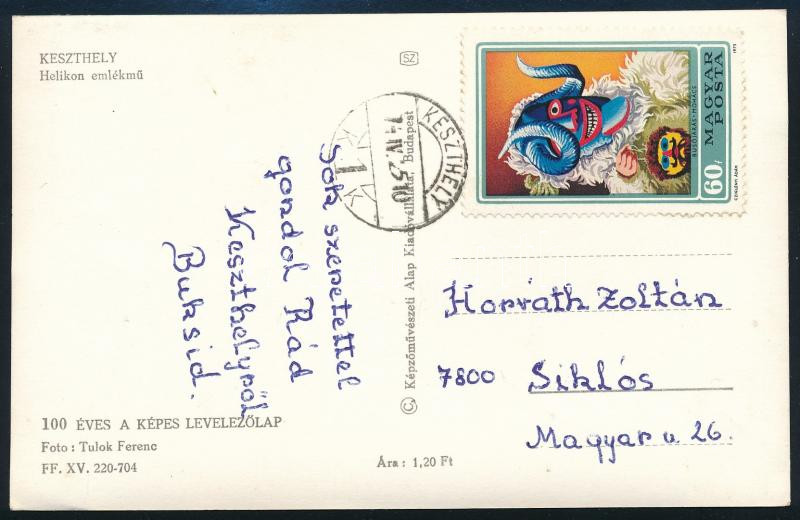 KESZTHELY
Helikon emlékmű
SZ
Sok szeretettel
gondol Rád
Keszthelyről
Buksid.
100 ÉVES A KÉPES LEVELEZŐLAP
Foto : Tulok Ferenc
FF. XV. 220-704
Ára : 1,20 Ft
© Képzőművészeti Alap Kiadóvállalata, Budapest
KESZTHELY
1
MAGYAR
POSTA
BUSÓJÁRÁS-MOHÁCS
60f
1973
Horváth Zoltán
7800 Siklós
Magyar u 26.